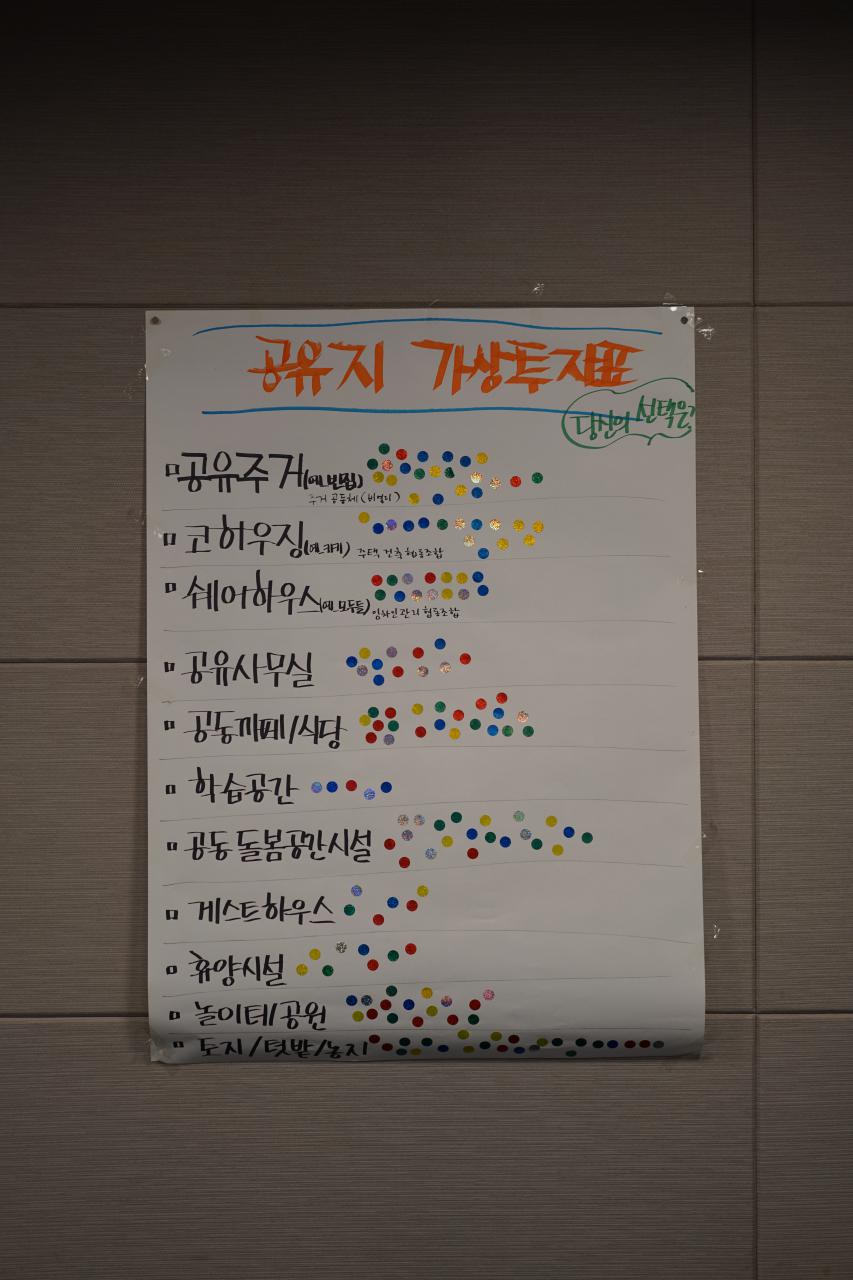 공유지 가상투자표
당신의 선택은?
공유주거(예_빈집)
주거 공동체 (비영리)
코하우징(예_하키)
주택 건축 협동조합
쉐어하우스(예_모두들)
임차인 관리 협동조합
공유사무실
공동까페/식당
학습공간
공동돌봄공간시설
게스트하우스
휴양시설
놀이터/공원
토지/텃밭/농지